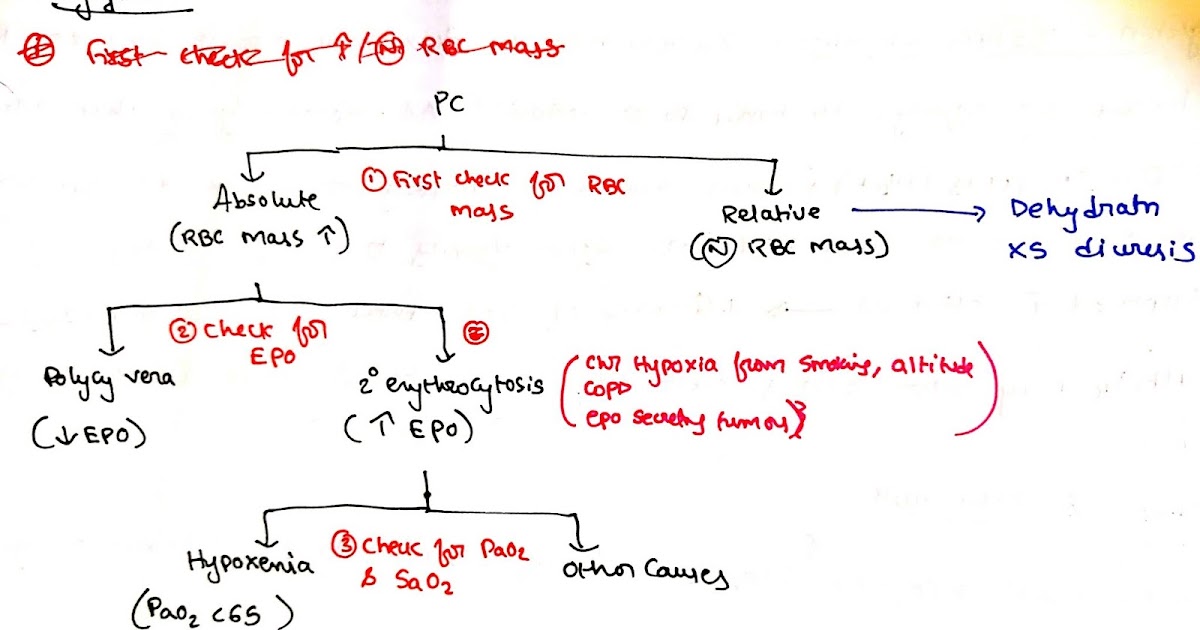 First check for ↑/Ⓝ RBC mass
PC
① First check for RBC
mass
Absolute
(RBC mass ↑)
Relative
(Ⓝ RBC mass)
Dehydratn
XS diuresis
② Check for
EPO
Polycy vera
(↓ EPO)
2° erythrocytosis
(↑ EPO)
Hypoxia from smoking, altitude
COPD
EPO secreting tumors
③ Check for PaO2
& SaO2
Hypoxemia
(PaO2 <65)
Other causes